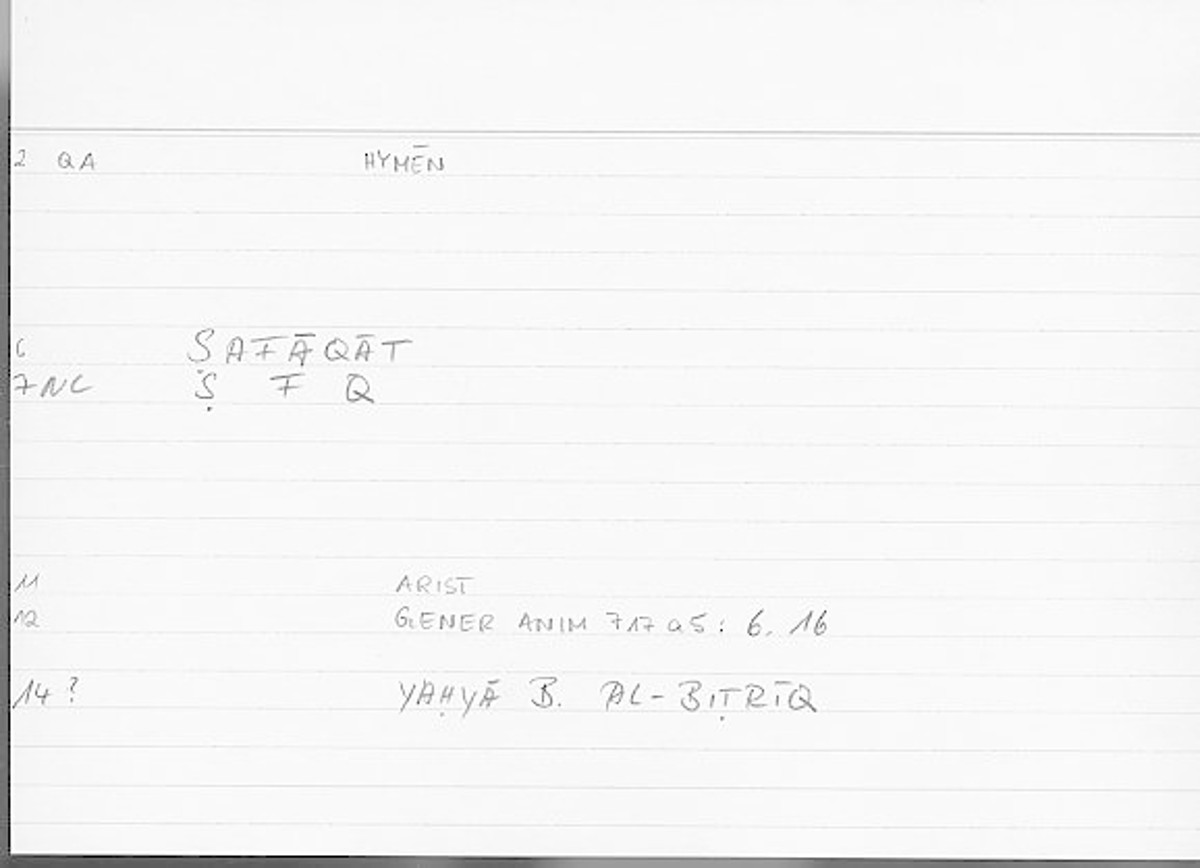 2 QA HYMĒN
6 ṢAFĀQĀT
7NC Ṣ F Q
11 ARIST
12 GENER ANIM 717a5: 6.16
14? YAḤYĀ B. AL-BIṬRĪQ